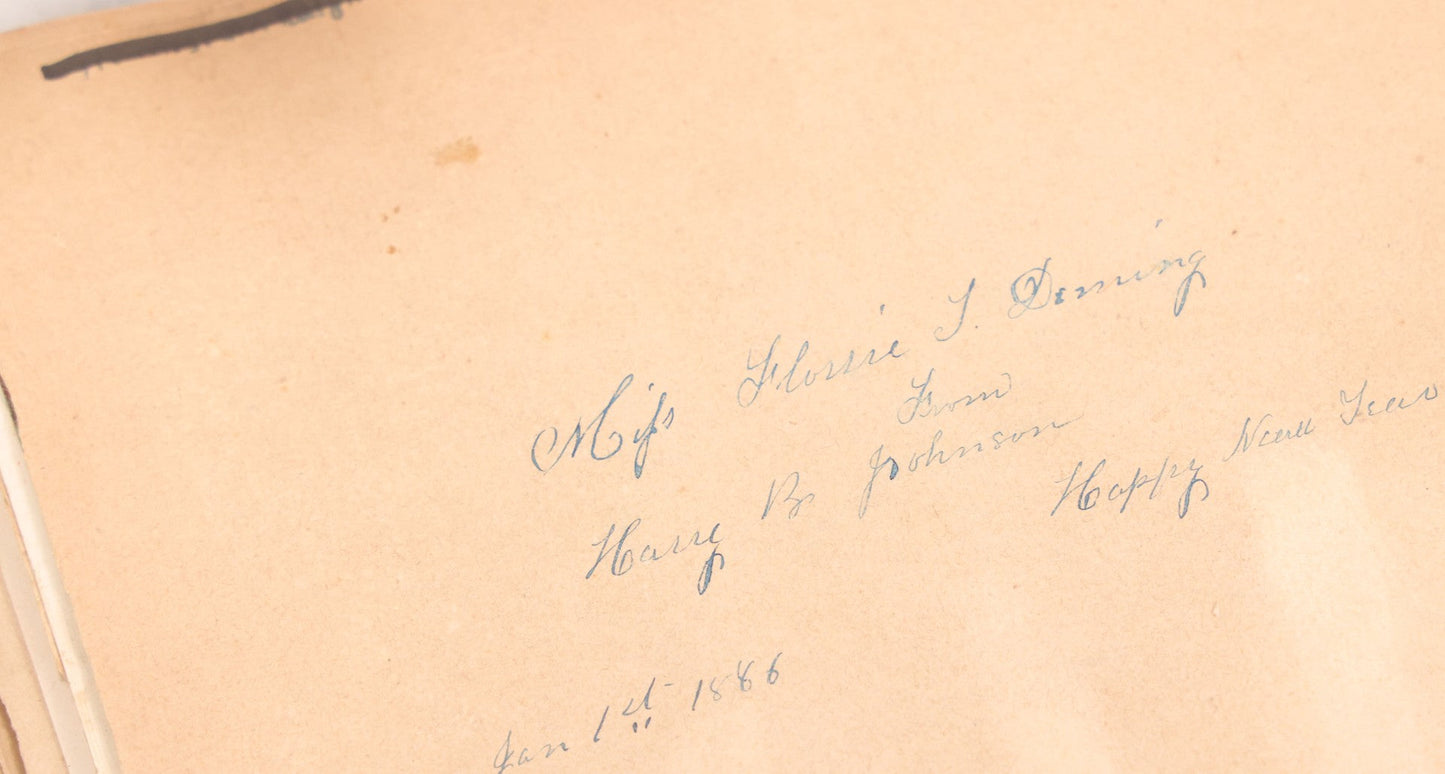 Miss Flossie T. Deming
From
Harry B Johnson
Happy New Year
Jan 1st 1886